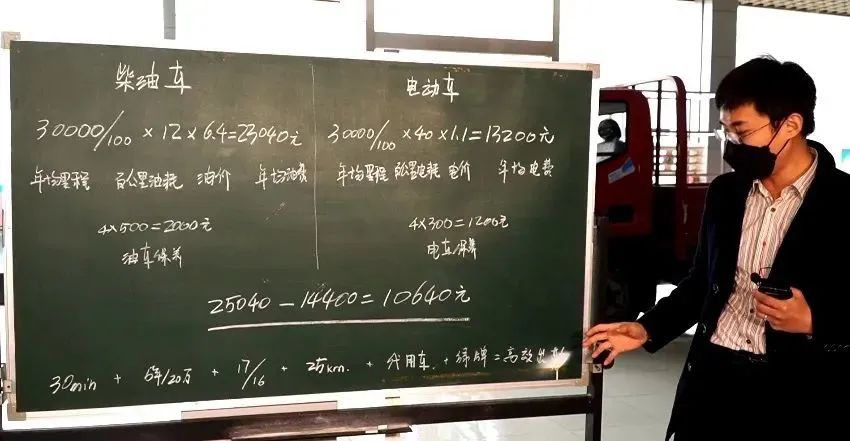 柴油车
30000/100×12×6.4=23040元
年均里程 百公里油耗 油价 年均油费
4×500=2000元
油车保养
电动车
30000/100×40×1.1=13200元
年均里程 百公里电耗 电价 年均电费
4×300=1200元
电车保养
25040-14400=10640元
30min + 5年/20万 + 17/16 + 2万km. + 代用车. + 绿牌=高效